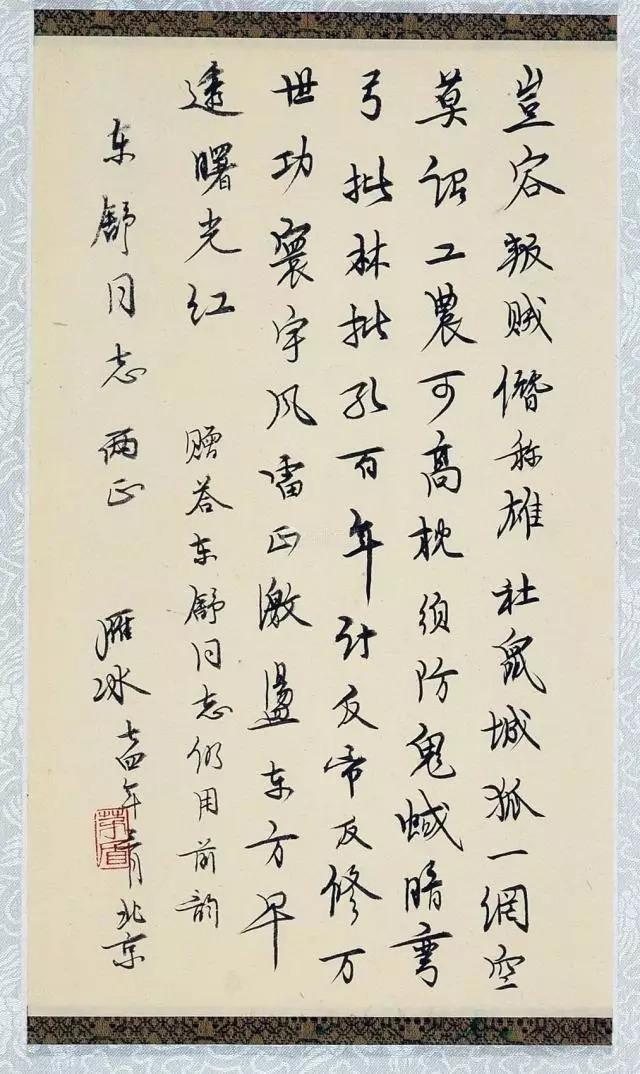 岂容叛贼僭称雄社鼠城狐一網空
莫谓工農可高枕须防鬼蜮暗弯
弓批林批孔百年计反帝反修万
世功寰宇风雷正激盪东方早
透曙光红
赠答东舒同志仍用前韵
东舒同志两正
雁冰七四年二月北京
茅盾